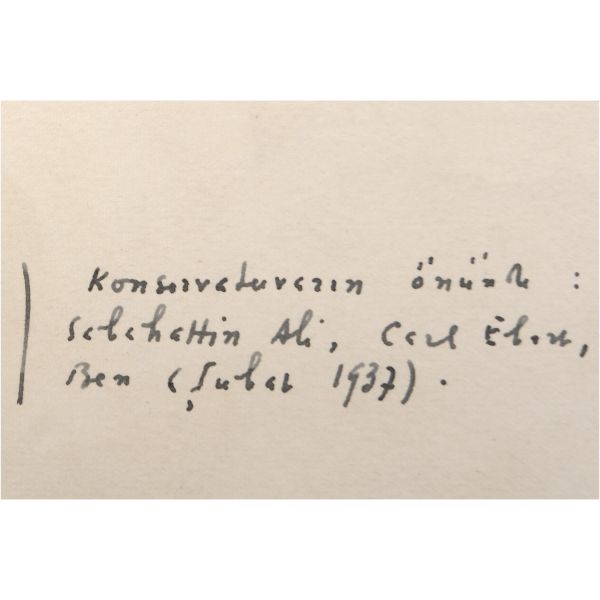 Konservatuvarın önünde :
Salahattin Ali, Carl Ebert,
Ben (Şubat 1937).